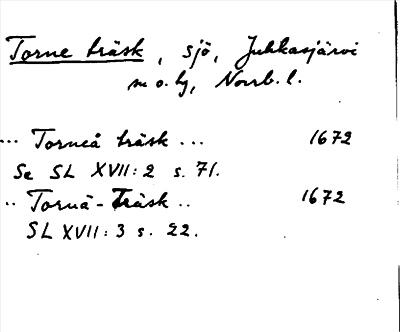 Torne träsk, sjö, Jukkasjärvi
sn o. by, Norrb. l.
... Torneå träsk ... 1672
Se SL XVII:2 s. 71.
.. Tornä-Träsk .. 1672
SL XVII:3 s. 22.